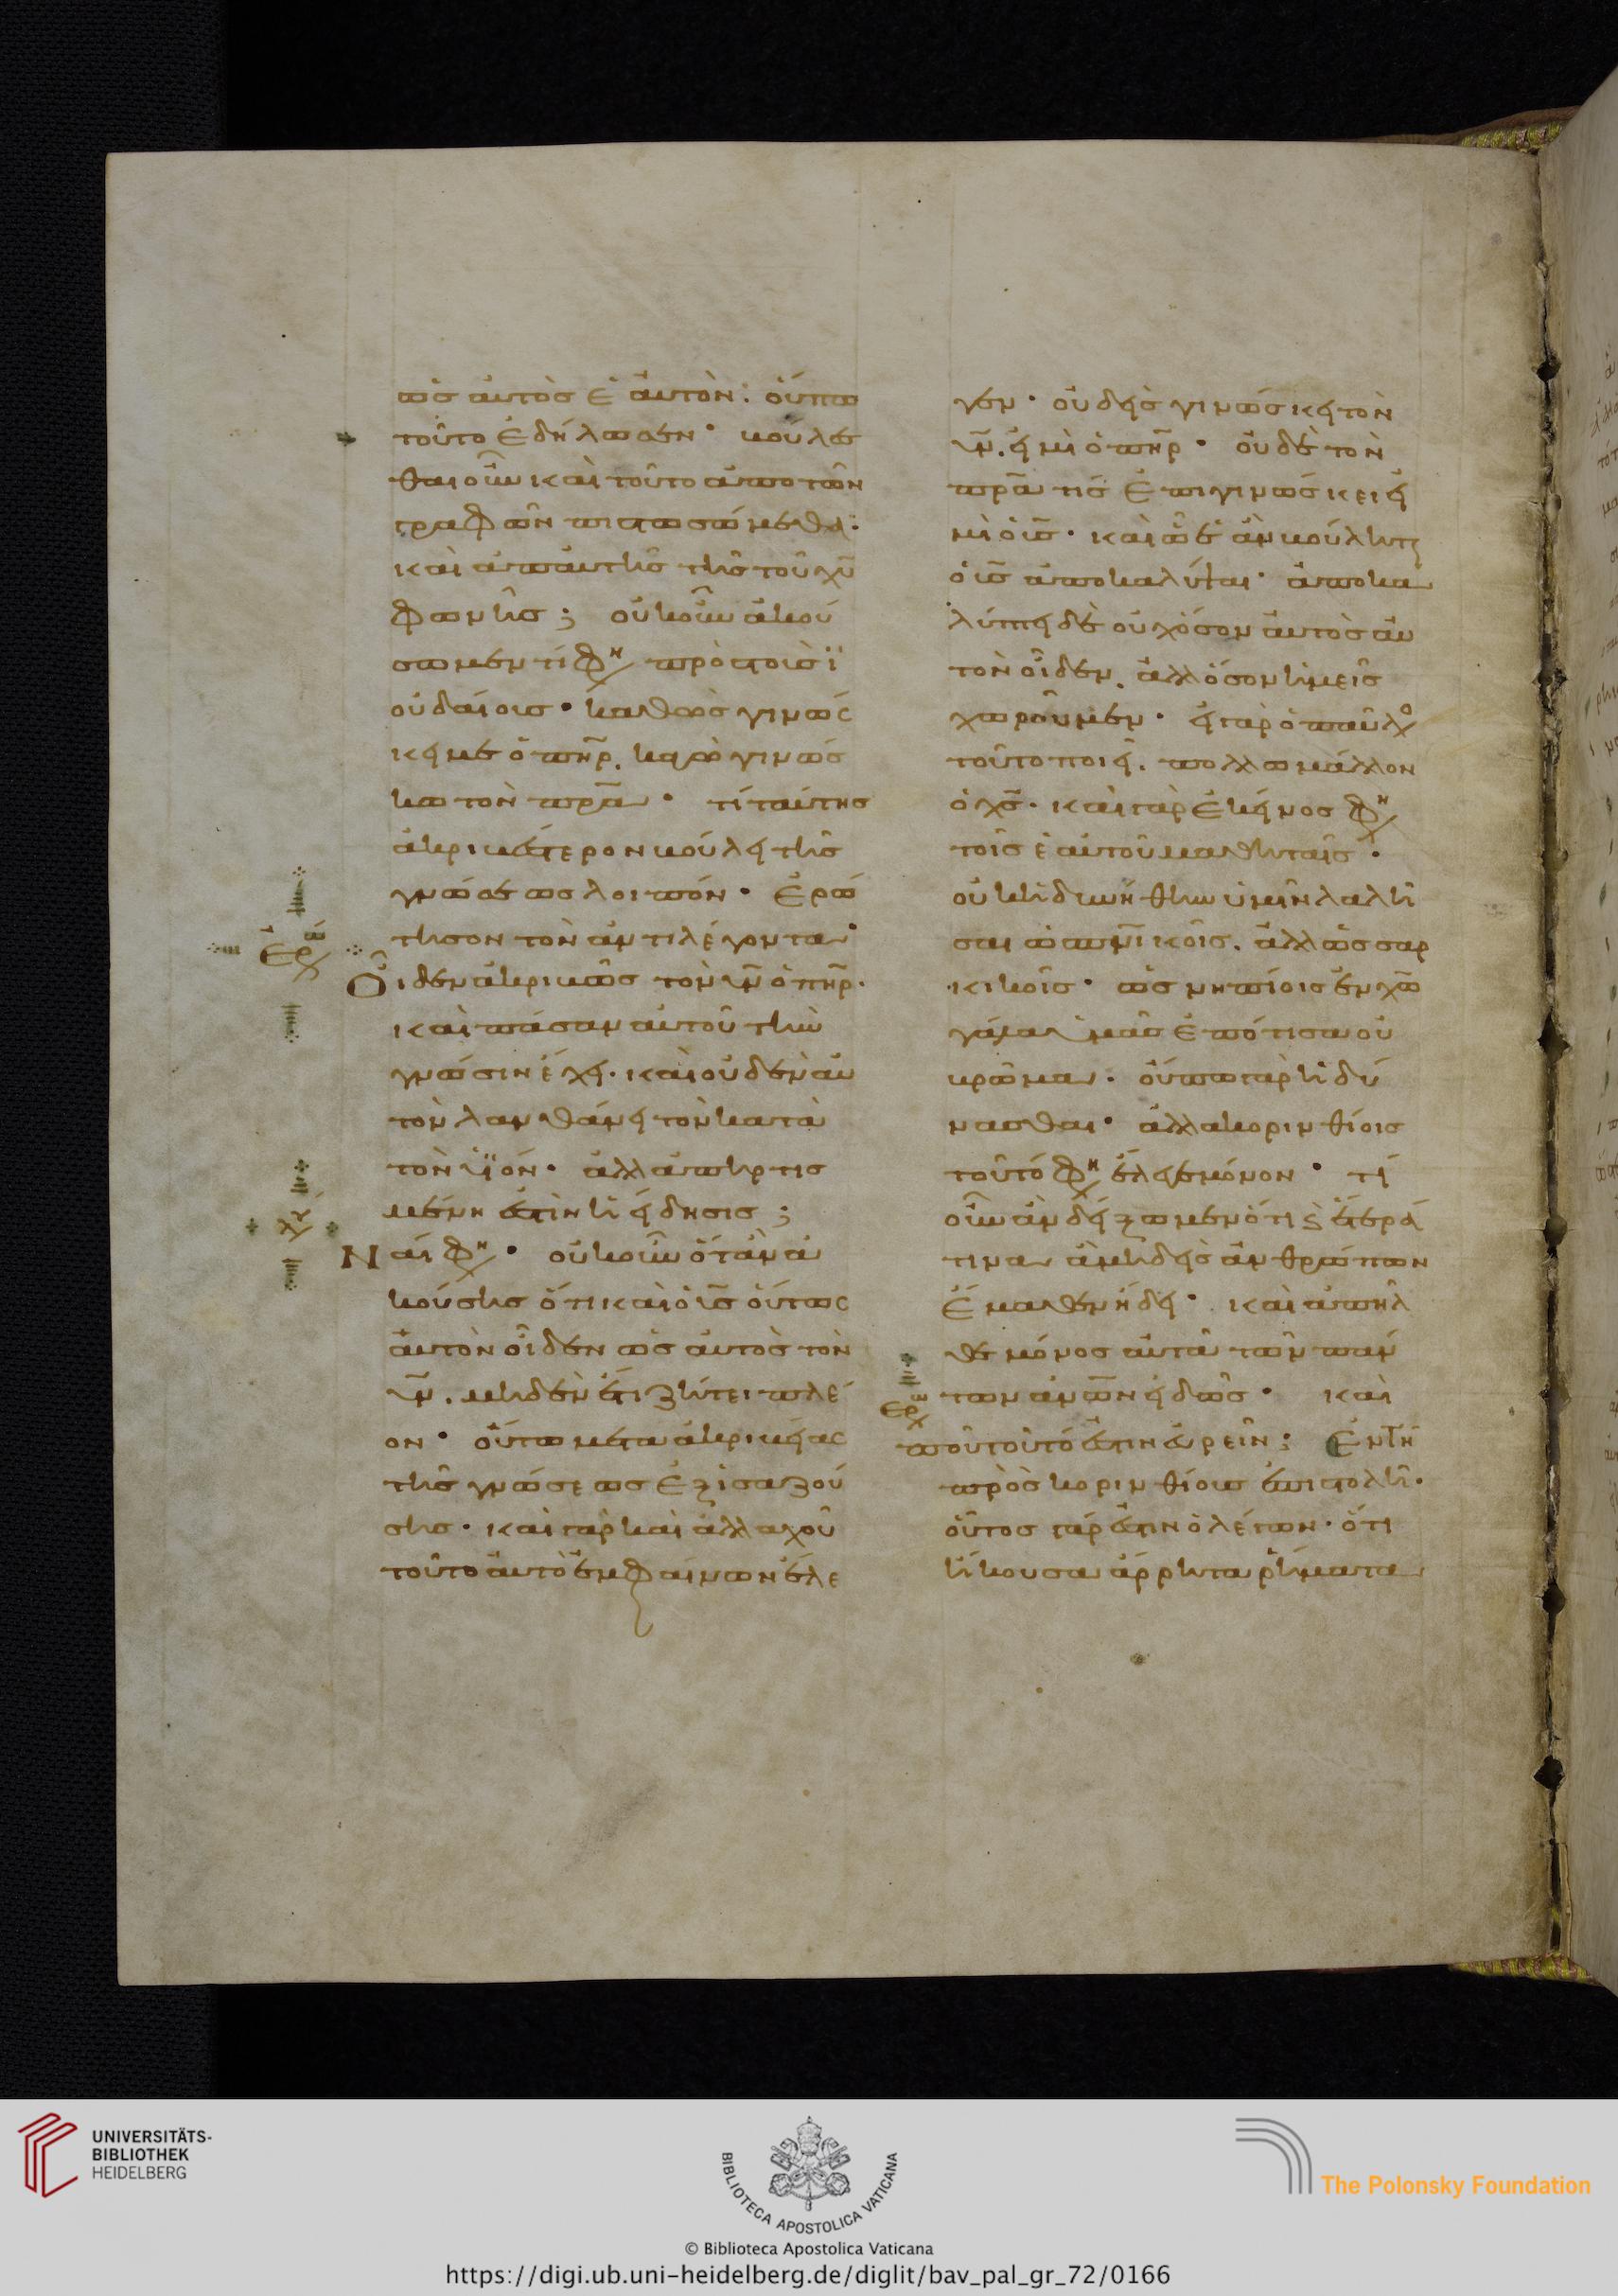 ὡς αὐτὸς ἑαυτὸν· οὔπω
τοῦτο ἐδήλωσεν· βούλεσ
θαι οὖν καὶ τοῦτο ἀπὸ τῶν
γραφῶν πιστωσώμεθα·
καὶ ἀπαυτῆς τῆς τοῦ χυ
φωνῆς; οὐκοῦν ἀκού
σωμεν τί φη πρὸς τοὺς ἰ
ουδαίους· καθὼς γινώσ
κει με ὁ πηρ. καγὼ γινώσ
κω τὸν πρα· τί ταύτης
ἀκριβέστερον βούλει τῆς
γνώσεως λοιπόν· ἐρώ
τησον τὸν ἀντιλέγοντα·
ερ
Οἶδεν ἀκριβῶς τὸν υν ὁ πηρ·
καὶ πᾶσαν αὐτοῦ τὴν
γνῶσιν ἔχει· καὶ οὐδὲν αὐ
τὸν λανθάνει τὸν κατὰ
τὸν υἱόν· ἀλλ ἀπηρτισ
μένη ἐστὶν ἡ εἴδησις;
χρ
Ναί φη· οὐκοῦν ὅταν ἀ
κούσης ὅτι καὶ ὁ ις οὕτως
αὐτὸν οἶδεν ὡς αὐτὸς τὸν
υν. μηδὲν ἔτι ζήτει πλέ
ον· οὕτω μετὰ ἀκριβείας
τῆς γνώσεως ἐξισαζού
σης· καὶ γὰρ καὶ ἀλλαχοῦ
τοῦτο αὐτὸ ἐμφαίνων ἔλε
γεν· οὐδεὶς γινώσκει τὸν
υν. εἰ μὴ ὁ πηρ· οὐδὲ τὸν
πρα τίς ἐπιγινώσκει εἰ
μὴ ὁ ις· καὶ ὧ ἐὰν βούληται
ὁ ις ἀποκαλύψαι· ἀποκα
λύπτει δὲ οὐχ ὅσον αὐτὸς αὐ
τὸν οἶδεν. ἀλλ ὅσον ἡμεῖς
χωροῦμεν· εἰ γὰρ ὁ παῦλο
τοῦτο ποιεῖ. πολλω μᾶλλον
ὁ χς· καὶ γὰρ ἐκεῖνος φη
τοῖς ἑαυτοῦ μαθηταῖς·
οὐκ ἠδυνήθην ὑμῖν λαλῆ
σαι ὡς πνικοῖς. ἀλλ ὡς σαρ
κικοῖς· ὡς νηπίοις ἐν χω
γάλα ὑμᾶς ἐπότισα οὐ
βρῶμα· οὔπω γὰρ ἠδύ
νασθαι· ἀλλὰ κορινθίοις
τοῦτό φη ἔλεγε μόνον· τί
οὖν ἂν δείξωμεν ὅτι ϛ ἕτερά
τινα ἃ μηδεὶς ἀνθρώπων
ἔμαθεν ἤδει· καὶ ἀπῆλ
θε μόνος αὐτὰ τῶν πάν
των ανων εἰδώς· καὶ
ερ
ποῦ τοῦτό ἐστιν εὑρεῖν; Ἐν τῆ
πρὸς κορινθίους ἐπιστολῆ·
οὗτος γάρ ἐστιν ὁ λέγων· ὅτι
ἤκουσα ἄρρητα ῥήματα
UNIVERSITÄTS-
BIBLIOTHEK
HEIDELBERG
BIBLIOTECA APOSTOLICA VATICANA
The Polonsky Foundation
© Biblioteca Apostolica Vaticana
https://digi.ub.uni-heidelberg.de/diglit/bav_pal_gr_72/0166